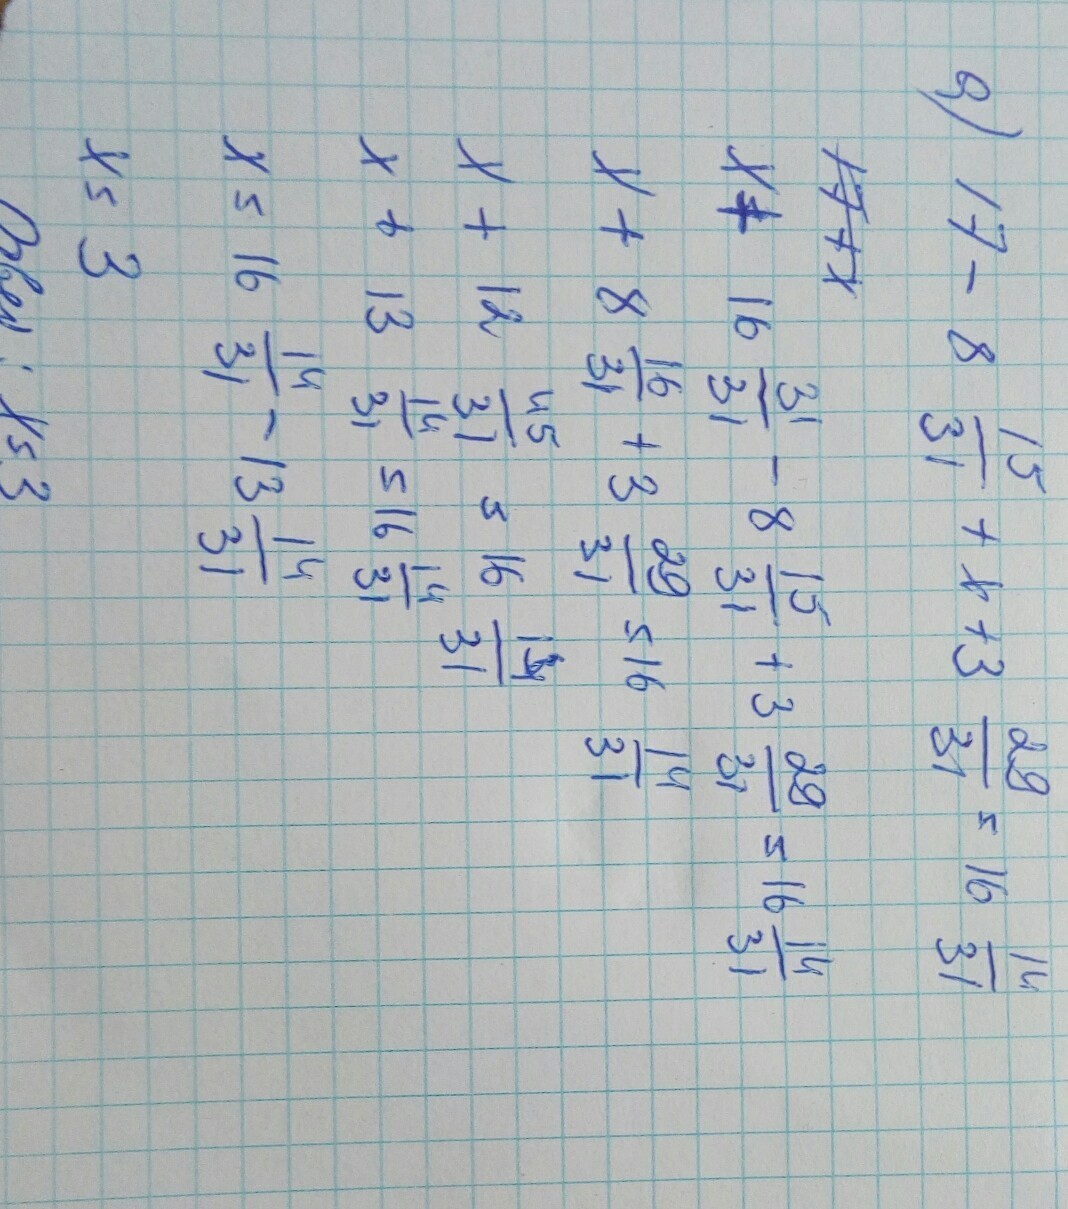 д) 17 - 8 15/31 + x + 3 29/31 = 16 14/31
17 + x
x + 16 31/31 - 8 15/31 + 3 29/31 = 16 14/31
x + 8 16/31 + 3 29/31 = 16 14/31
x + 12 45/31 = 16 14/31
x + 13 14/31 = 16 14/31
x = 16 14/31 - 13 14/31
x = 3
Ответ: x = 3